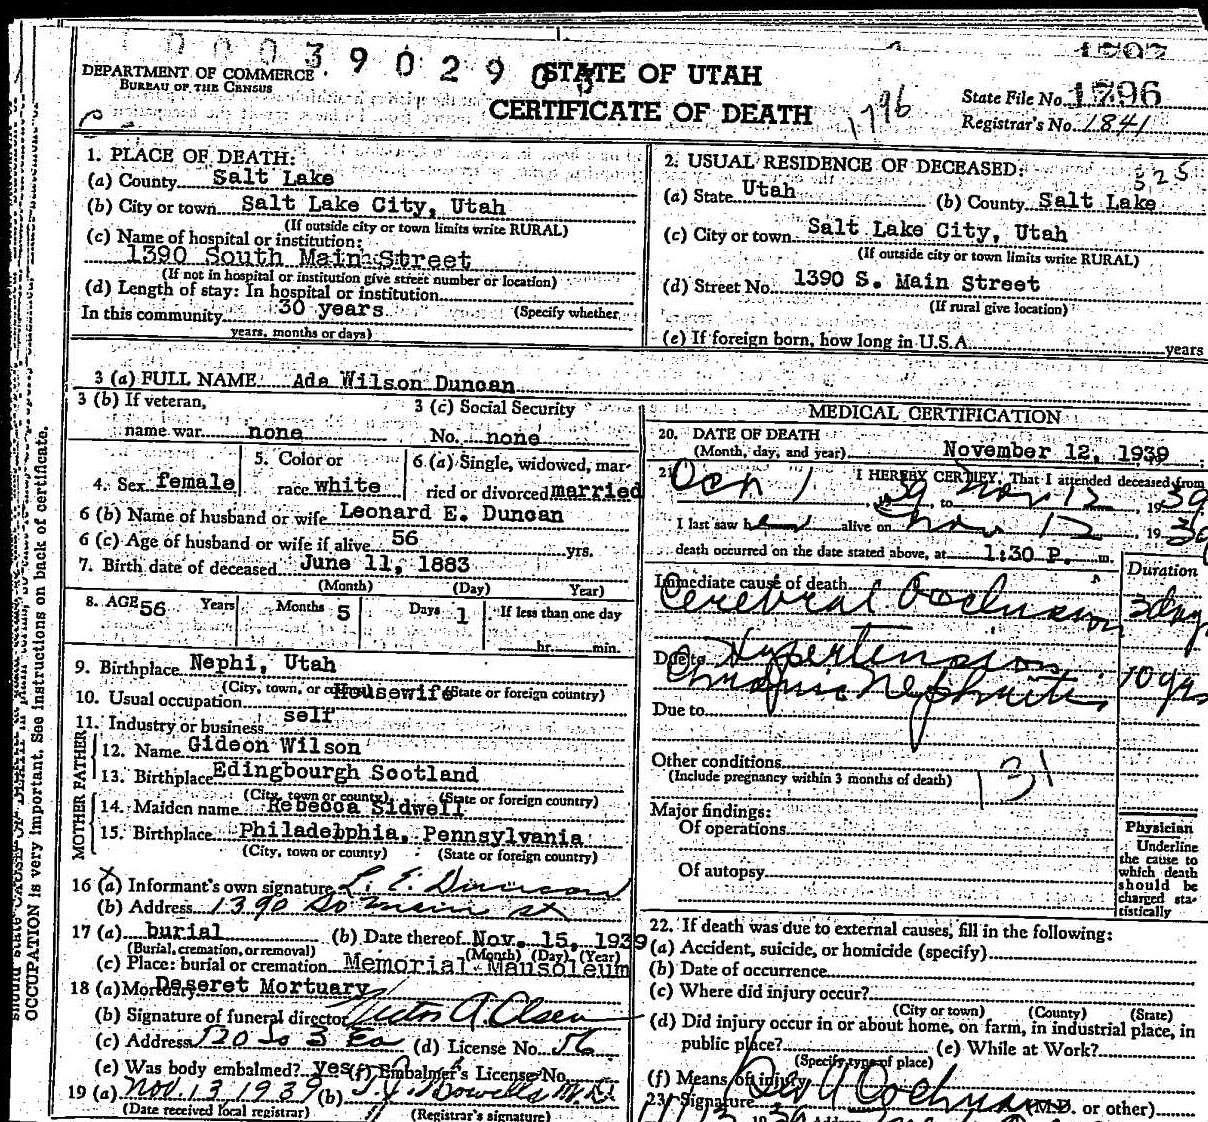 0 0 0 3 9 0 2 9 0 5
DEPARTMENT OF COMMERCE
BUREAU OF THE CENSUS
STATE OF UTAH
CERTIFICATE OF DEATH
1796
State File No. 1796
Registrar's No. 1841
1. PLACE OF DEATH:
(a) County Salt Lake
(b) City or town Salt Lake City, Utah
(If outside city or town limits write RURAL)
(c) Name of hospital or institution:
1390 South Main Street
(If not in hospital or institution give street number or location)
(d) Length of stay: In hospital or institution
In this community 30 years (Specify whether
years, months or days)
2. USUAL RESIDENCE OF DECEASED:
325
(a) State Utah (b) County Salt Lake
(c) City or town Salt Lake City, Utah
(If outside city or town limits write RURAL)
(d) Street No. 1390 S. Main Street
(If rural give location)
(e) If foreign born, how long in U.S.A. years
3 (a) FULL NAME Ada Wilson Duncan
3 (b) If veteran,
name war none
3 (c) Social Security
No. none
4. Sex female
5. Color or
race white
6 (a) Single, widowed, mar-
ried or divorced married
6 (b) Name of husband or wife Leonard E. Duncan
6 (c) Age of husband or wife if alive 56 yrs.
7. Birth date of deceased June 11, 1883
(Month) (Day) Year)
8. AGE 56 Years Months 5 Days 1 If less than one day
hr. min.
9. Birthplace Nephi, Utah
(City, town, or county) (State or foreign country)
10. Usual occupation Housewife
11. Industry or business self
FATHER
12. Name Gideon Wilson
13. Birthplace Edingbourgh Scotland
(City, town or county) (State or foreign country)
MOTHER
14. Maiden name Rebecca Sidwell
15. Birthplace Philadelphia, Pennsylvania
(City, town or county) (State or foreign country)
16 (a) Informant's own signature L. E. Duncan
(b) Address 1390 So Main St
17 (a) burial (b) Date thereof Nov. 15, 1939
(Burial, cremation, or removal) (Month) (Day) (Year)
(c) Place: burial or cremation Memorial Mausoleum
18 (a) Mortuary Deseret Mortuary
(b) Signature of funeral director Victor A. Olsen
(c) Address 120 So 3 Ea (d) License No. 56
(e) Was body embalmed? yes (f) Embalmer's License No.
19 (a) Nov. 13, 1939 (b) M.D.
(Date received local registrar) (Registrar's signature)
MEDICAL CERTIFICATION
20. DATE OF DEATH
(Month, day, and year) November 12, 1939
21. I HEREBY CERTIFY, That I attended deceased from
Oct 1 39 to Nov 12 1939
I last saw her alive on Nov 12 1939
death occurred on the date stated above, at 1:30 P. m.
Duration
Immediate cause of death
Cerebral Occlusion 3 days
Due to Hypertension
Chronic Nephritis 10 yrs
Due to
Other conditions
(Include pregnancy within 3 months of death) 131
Major findings:
Of operations
Of autopsy
Physician
Underline
the cause to
which death
should be
charged sta-
tistically
22. If death was due to external causes, fill in the following:
(a) Accident, suicide, or homicide (specify)
(b) Date of occurrence
(c) Where did injury occur?
(City or town) (County) (State)
(d) Did injury occur in or about home, on farm, in industrial place, in
public place? (e) While at Work?
(Specify type of place)
(f) Means of injury
23. Signature (M.D. or other)
OCCUPATION is very important. See instructions on back of certificate.